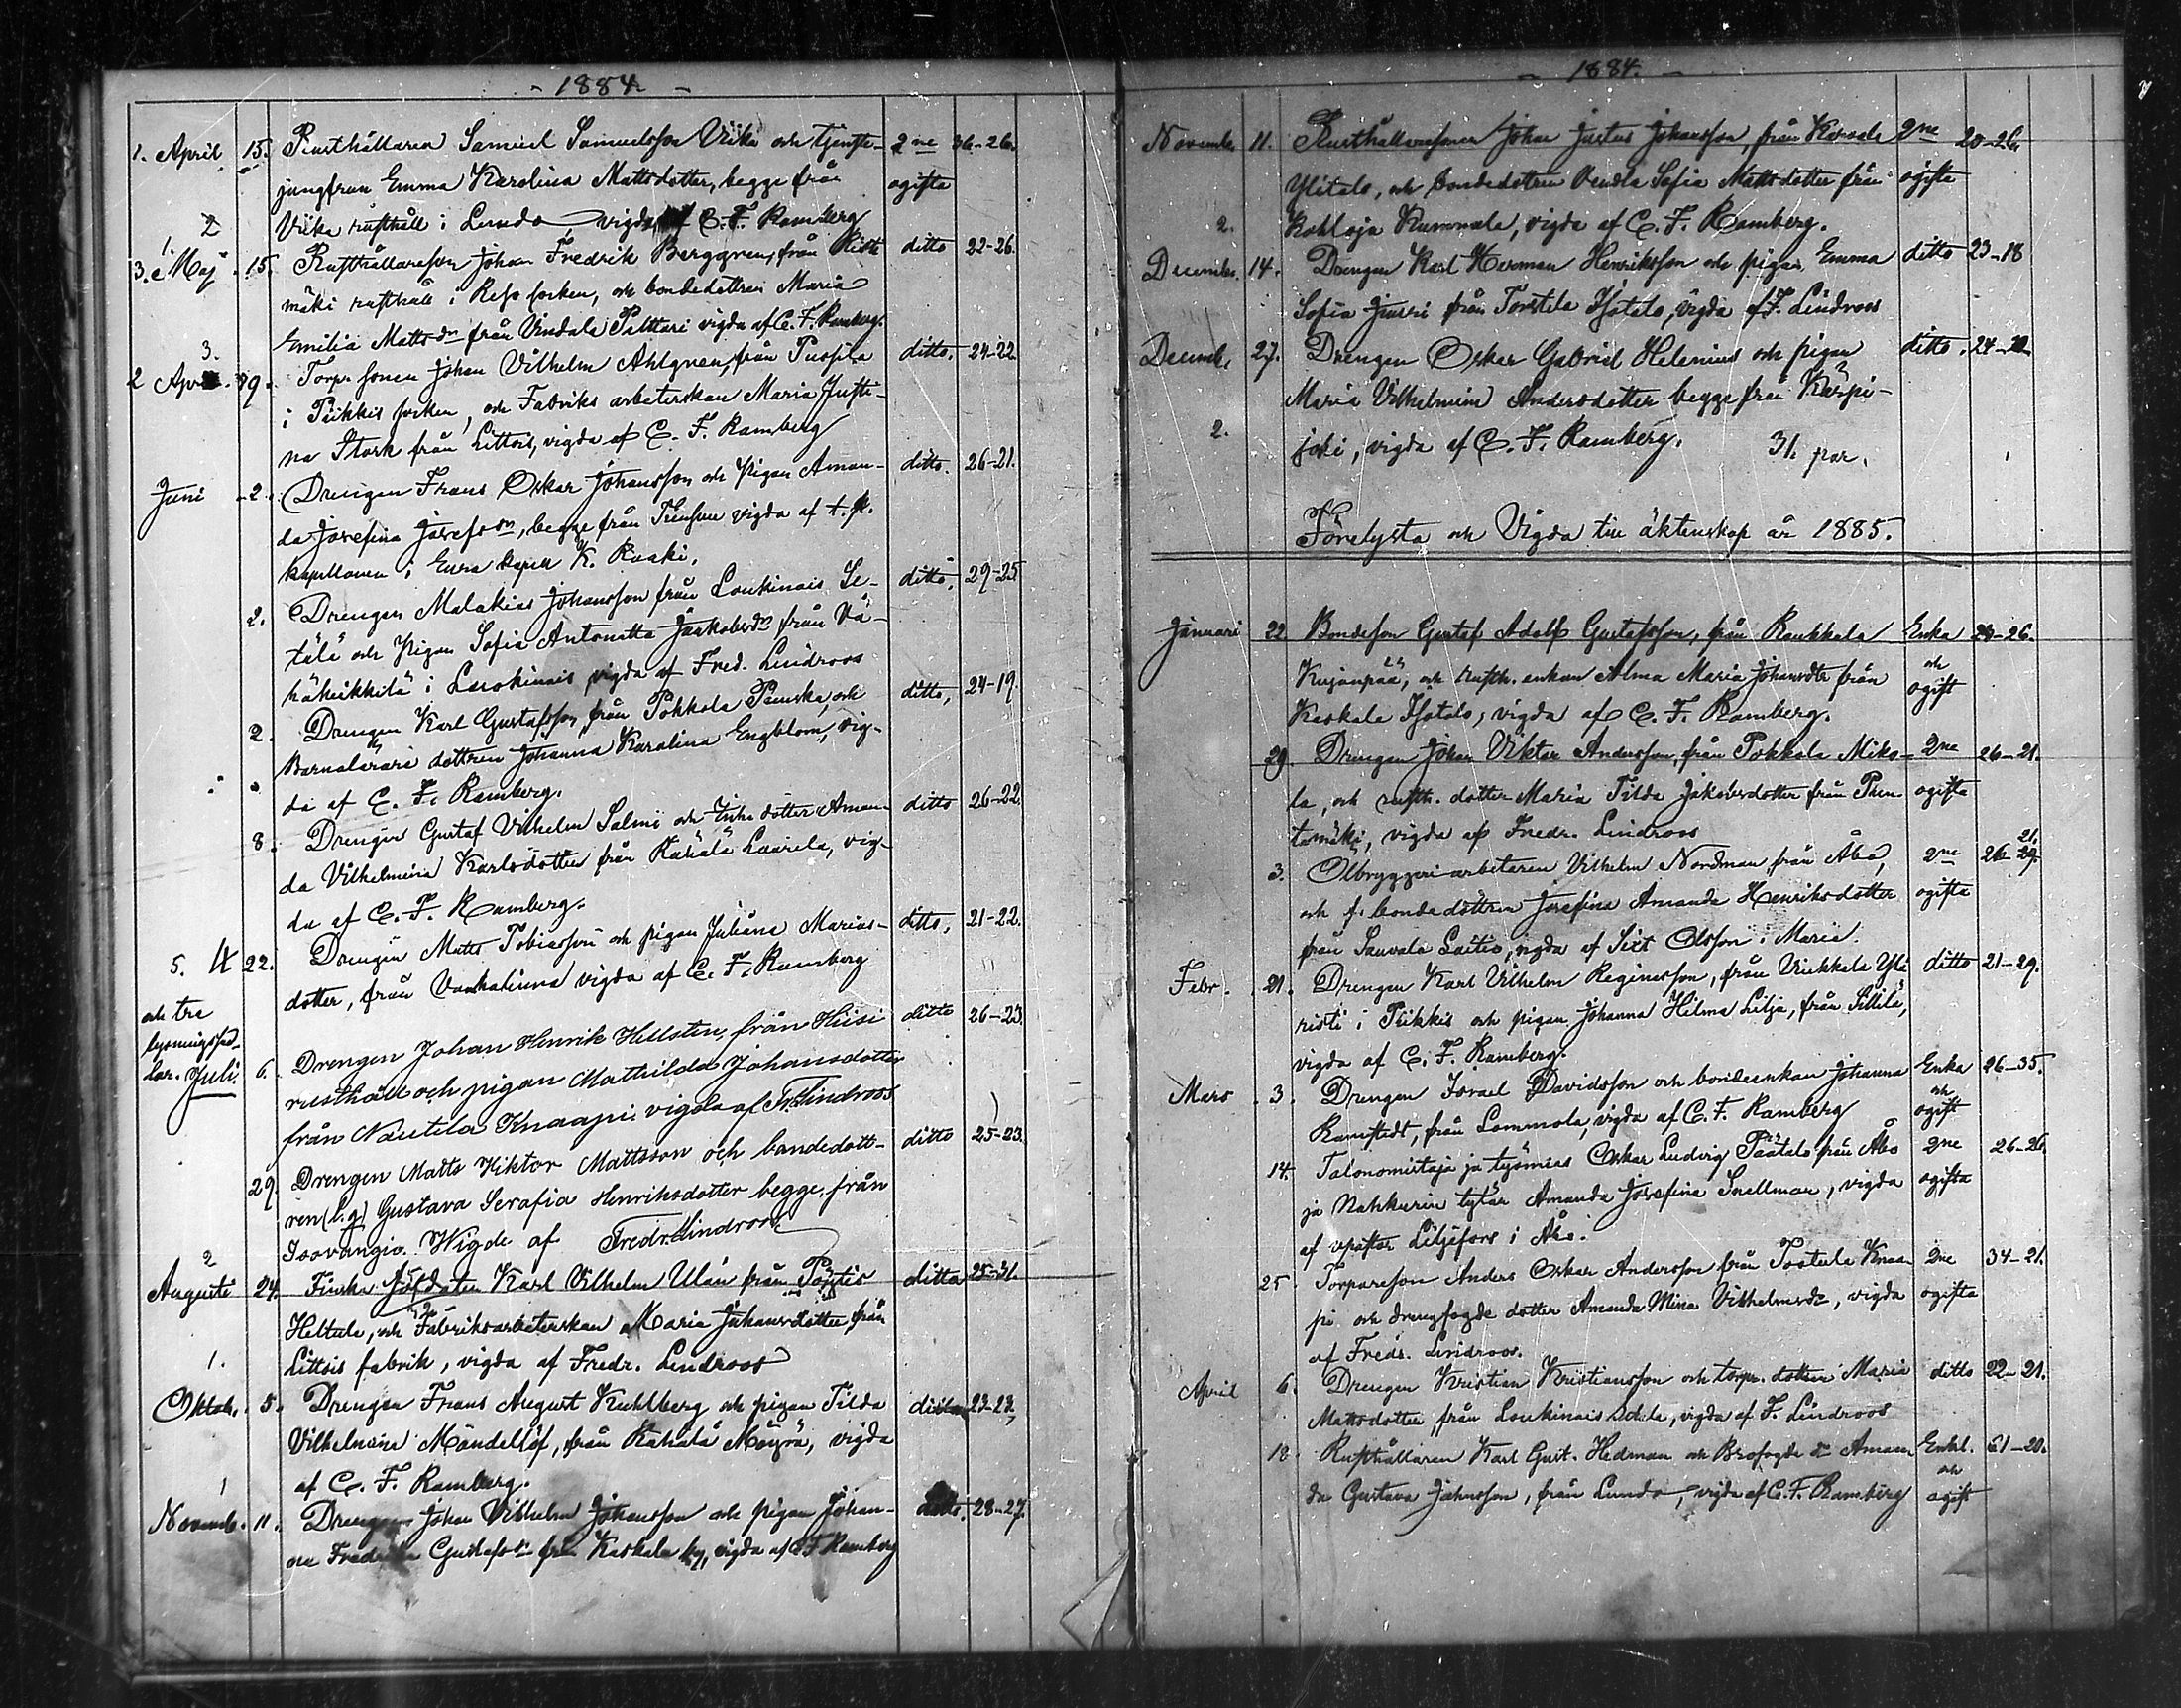 - 1884 -
1. April 15. Rusthållaren Samuel Samuelsson Viika och tjenste- 2ne 36-26.
jungfrun Emma Karolina Mattsdotter, begge från ogifta
2 Viika rusthåll i Lundo, vigda af C. F. Ramberg
1.
3. Maj 15. Rusthållareson Johan Fredrik Berggren, från ditto 22-26.
mäki rusthåll i Reso socken, och bondedottren Maria
Emilia Mattsdr från Vindala Palttari vigda af C. F. Ramberg.
3.
2 April 9. Torp. sonen Johan Vilhelm Ahlgren, från Puosila ditto. 24-22
i Piikkis socken, och Fabriks arbeterskan Maria Justi-
na Stark från Littois, vigda af C. F. Ramberg
Juni 2. Drengen Frans Oskar Johansson och pigan Aman- ditto. 26-21.
da Josefina Josefsdr, begge från vigda af t. f.
kapellanen i Eura kapell K. Raaki.
2. Drengen Malakias Johansson från Loukinais Se- ditto. 29-25
tälä och Pigan Sofia Antonetta Jaakobsdr från Vä-
häheikkilä i Loukinais vigda af Fred. Lindroos
2. Drengen Karl Gustafsson, från Pokkola Pauska, och ditto, 24-19
Barnalärare dottren Johanna Karolina Engblom, vig-
da af C. F. Ramberg.
8. Drengen Gustaf Vilhelm Salmi och Enke dotter Aman- ditto 26-22.
da Vilhelmina Karlsdotter från Rähälä Laurila, vig-
da af C. F. Ramberg.
5. 4 22. Drengen Matts Tobiasson och pigan Juliana Marias- ditto, 21-22.
dotter, från Vankalinna vigda af C. F. Ramberg
och tre
lysningssed-
lar. Juli. 6. Drengen Johan Henrik Hellsten, från Hiisi ditto 26-23.
rusthåll och pigan Mathilda Johansdotter
från Nautela Knaapi. vigda af Fr. Lindroos
29. Drengen Matts Viktor Mattsson och bondedott- ditto 25-23.
ren (l.g.) Gustava Serafia Henriksdotter begge, från
Isovangio. Wigde af Fredr. Lindroos
2
Augusti 24. Finska Soldaten Karl Vilhelm Ulan från Pöytis ditto 25-31.
Heltula, och Fabriksarbeterskan Maria Johansdotter från
1. Littois fabrik, vigda af Fredr. Lindroos
Oktob. 5. Drengen Frans August Kuhlberg och pigan Tilda ditto 23-23,
Vilhelmina Mandellöf, från Rähälä Mäyrä, vigda
1 af C. F. Ramberg.
Novemb. 11. Drengen Johan Vilhelm Johansson och pigan Johan- ditto. 28-27.
na Fredrika Gustafsdr från Kaskala by, vigda af C. F. Ramberg
- 1884. -
November 11. Rusthållaresonen Johan Justus Johansson, från Karvala 2ne 20-26.
Ylitalo, och bondedottren Vendla Sofia Mattsdotter från ogifta
2. Kohloja Kummala, vigda af C. F. Ramberg.
December. 14. Drengen Karl Herman Henriksson och pigan Emma ditto 23-18
Sofia Juusri från Torstila Isotalo, vigda af F. Lindroos
Decemb. 27. Drengen Oskar Gabriel Helenius och pigan ditto. 24-20
Maria Vilhelmina Andersdotter begge från Karpi-
2. joki, vigda af C. F. Ramberg. 31. par.
Förelysta och Vigda till äktenskap år 1885.
Januari 22 Bondeson Gustaf Adolf Gustafsson, från Raukkala Enka 24-26.
Kujanpää, och rusth. enkan Alma Maria Johansdtr från och ogift
Kaskala Isotalo, vigda af C. F. Ramberg.
29. Drengen Johan Viktor Andersson, från Pokkola Miko- 2ne 26-21.
la, och rusth. dotter Maria Tilda Jakobsdotter från Pun- ogifta
tamäki, vigda af Fredr. Lindroos 21.
3. Ölbryggeriarbetaren Vilhelm Nordman, från Åbo, 2ne 26-29.
och f. bondedottren Josefina Amanda Henriksdotter ogifta
från Sauvala Laitio, vigda af Sixt Olsson i Maria.
Febr. 21. Drengen Karl Vilhelm Reginasson, från Viukkala Yli ditto 21-29.
risti i Piikkis och pigan Johanna Hilma Lilja, från Sillilä,
vigda af C. F. Ramberg.
Mars 3. Drengen Israel Davidsson och bondeenkan Johanna Enka 26-35.
Ramstedt, från Lammola, vigda af C. F. Ramberg och ogift
14. Talonomistaja ja työmies Oskar Ludvig Päätalo från Åbo 2ne 26-26.
ja Nahkurin tytär Amanda Josefina Snellman, vigda ogifta
af v.pastor Liljefors i Åbo.
25. Torpareson Anders Oskar Andersson från Tostula Knaa- 2ne 34-21.
pi och drengfogde dotter Amanda Mina Vilhelmsdr, vigda ogifta
af Fredr. Lindroos.
April 6. Drengen Kristian Kristiansson och torp. dottren Maria ditto 22-21.
Mattsdotter, från Loukinais Setälä, vigda af F. Lindroos
10. Rusthållaren Karl Gust. Hedman och Brofogde dr Aman- Enkl. 61-20.
da Gustava Johnsson, från Lundo, vigda af C. F. Ramberg och ogift